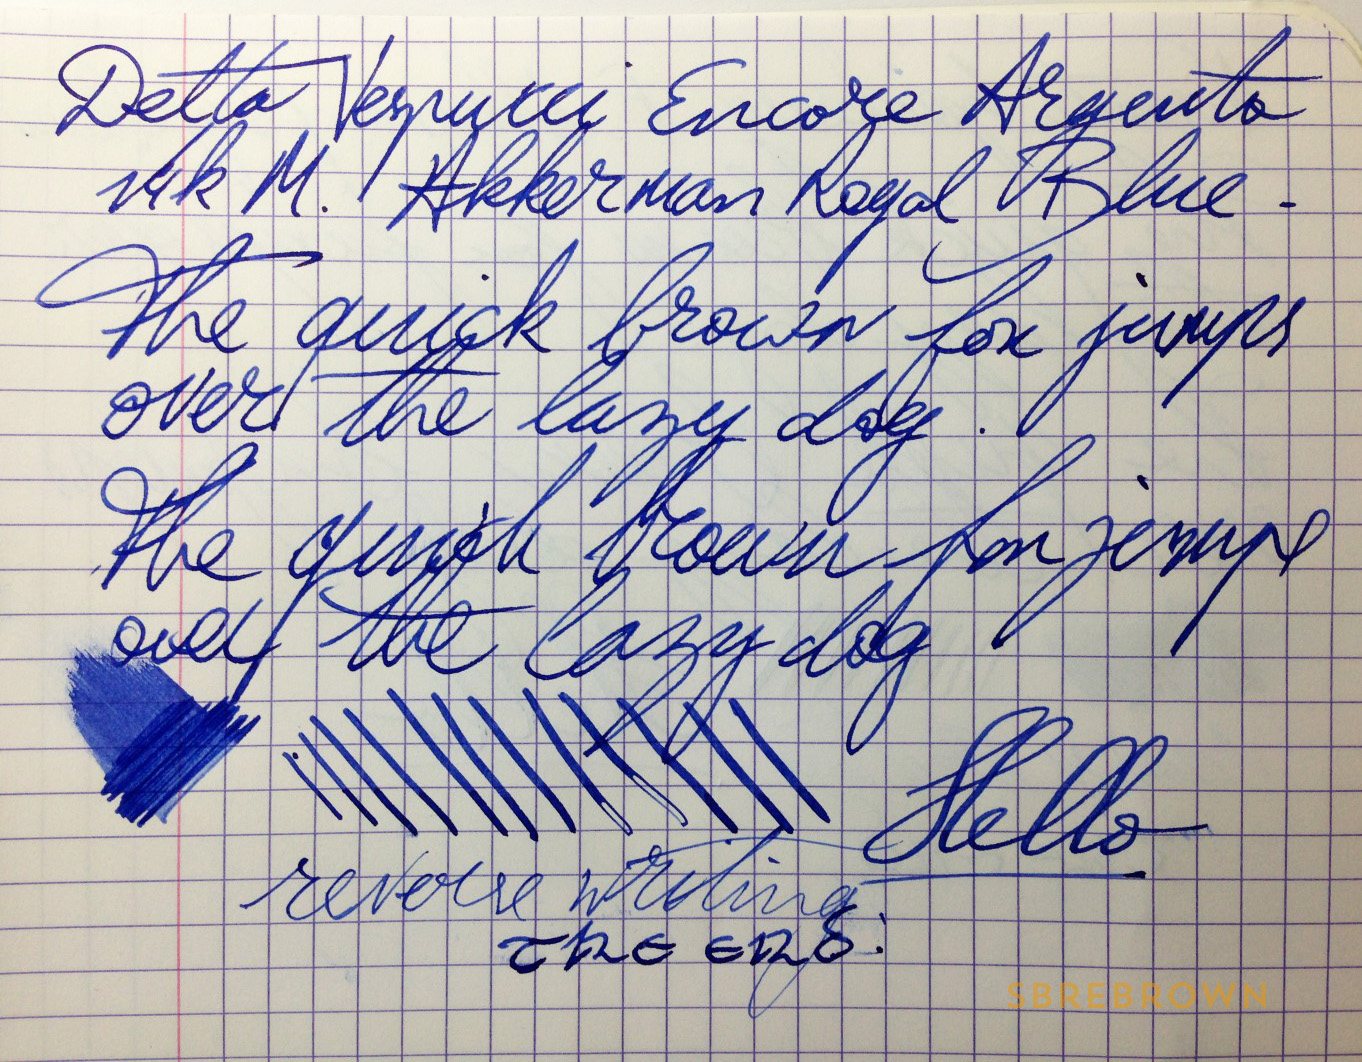 Delta Vespucci Encore Argento
nib M. Akkerman Royal Blue -
The quick brown fox jumps
over the lazy dog.
The quick brown fox jumps
over the lazy dog
Hello
reverse writing
the end.
SBREBROWN